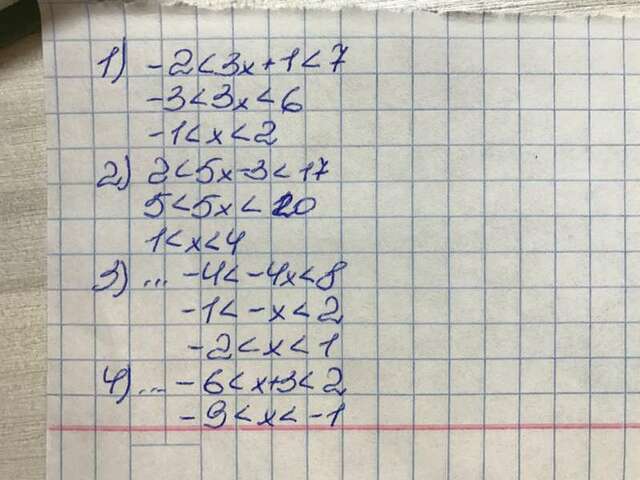 1) -2<3x+1<7
-3<3x<6
-1<x<2
2) 2<5x-3<17
5<5x<20
1<x<4
3) ... -4<-4x<8
-1<-x<2
-2<x<1
4) ... -6<x+3<2
-9<x<-1